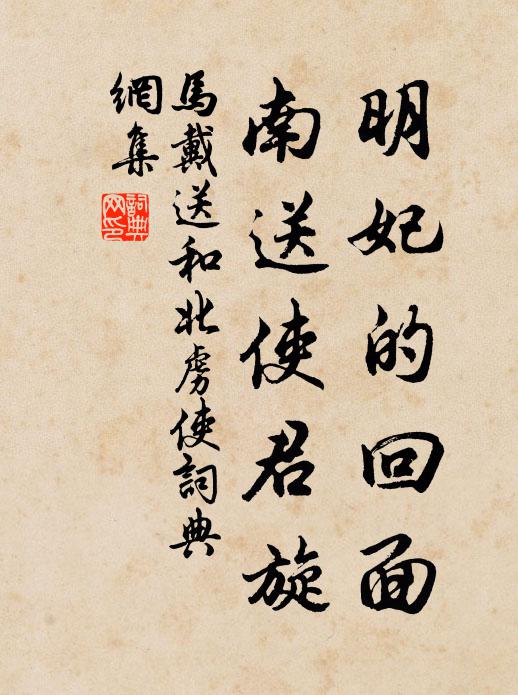 明妃的回面
南送使君旋
馬戴送和北虜使詞典
網集
詞典
网印